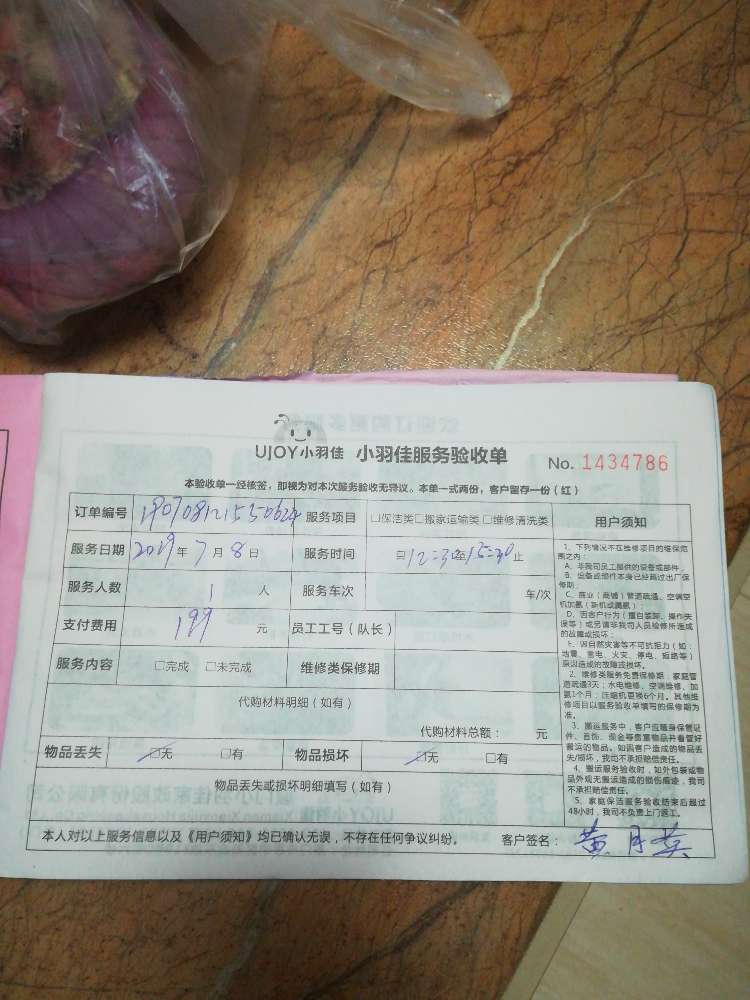 UJOY小羽佳 小羽佳服务验收单 No. 1434786
本验收单一经核签，即视为对本次服务验收无异议。本单一式两份，客户留存一份（红）
订单编号 服务项目 □保洁类□搬家运输类 □维修清洗类
服务日期 2019年 7月 8日 服务时间 自12:30至15:30止
服务人数 1 人 服务车次 车/次
支付费用 199 元 员工工号（队长）
服务内容 □完成 □未完成 维修类保修期
代购材料明细（如有）
代购材料总额： 元
物品丢失 ☑无 □有 物品损坏 ☑无 □有
物品丢失或损坏明细填写（如有）
本人对以上服务信息以及《用户须知》均已确认无误，不存在任何争议纠纷。 客户签名：黄月英
用户须知
1、下列情况不在维修项目的维保范
围之内：
A、非我司员工提供的设备或部件；
B、设备或部件本身已经超过出厂保
修期；
C、商业（商铺）管道疏通、空调空
机加氟（新机或漏氟）；
D、因客户行为（擅自装卸、操作失
误等）或另请非我司人员检修所造成
的故障或损坏；
E、因自然灾害等不可抗拒力（如：
地震、雷电、火灾、停电、短路等）
原因造成的故障或损坏。
2、维修类服务免费保修期：家庭管
道疏通3天；水电维修、空调维修、加
氟1个月；压缩机更换6个月。其他维
修项目以服务验收单填写的保修期为
准。
3、搬运服务中，客户应随身保管证
件、首饰、现金等贵重物品并看管好
搬运的物品。如因客户造成的物品丢
失/损坏，我司不承担赔偿责任。
4、搬运服务验收时，如外包装或物
品外观无搬运造成的损伤痕迹，我司
不承担赔偿责任。
5、家庭保洁服务验收结束后超过
48小时，我司不负责上门返工。